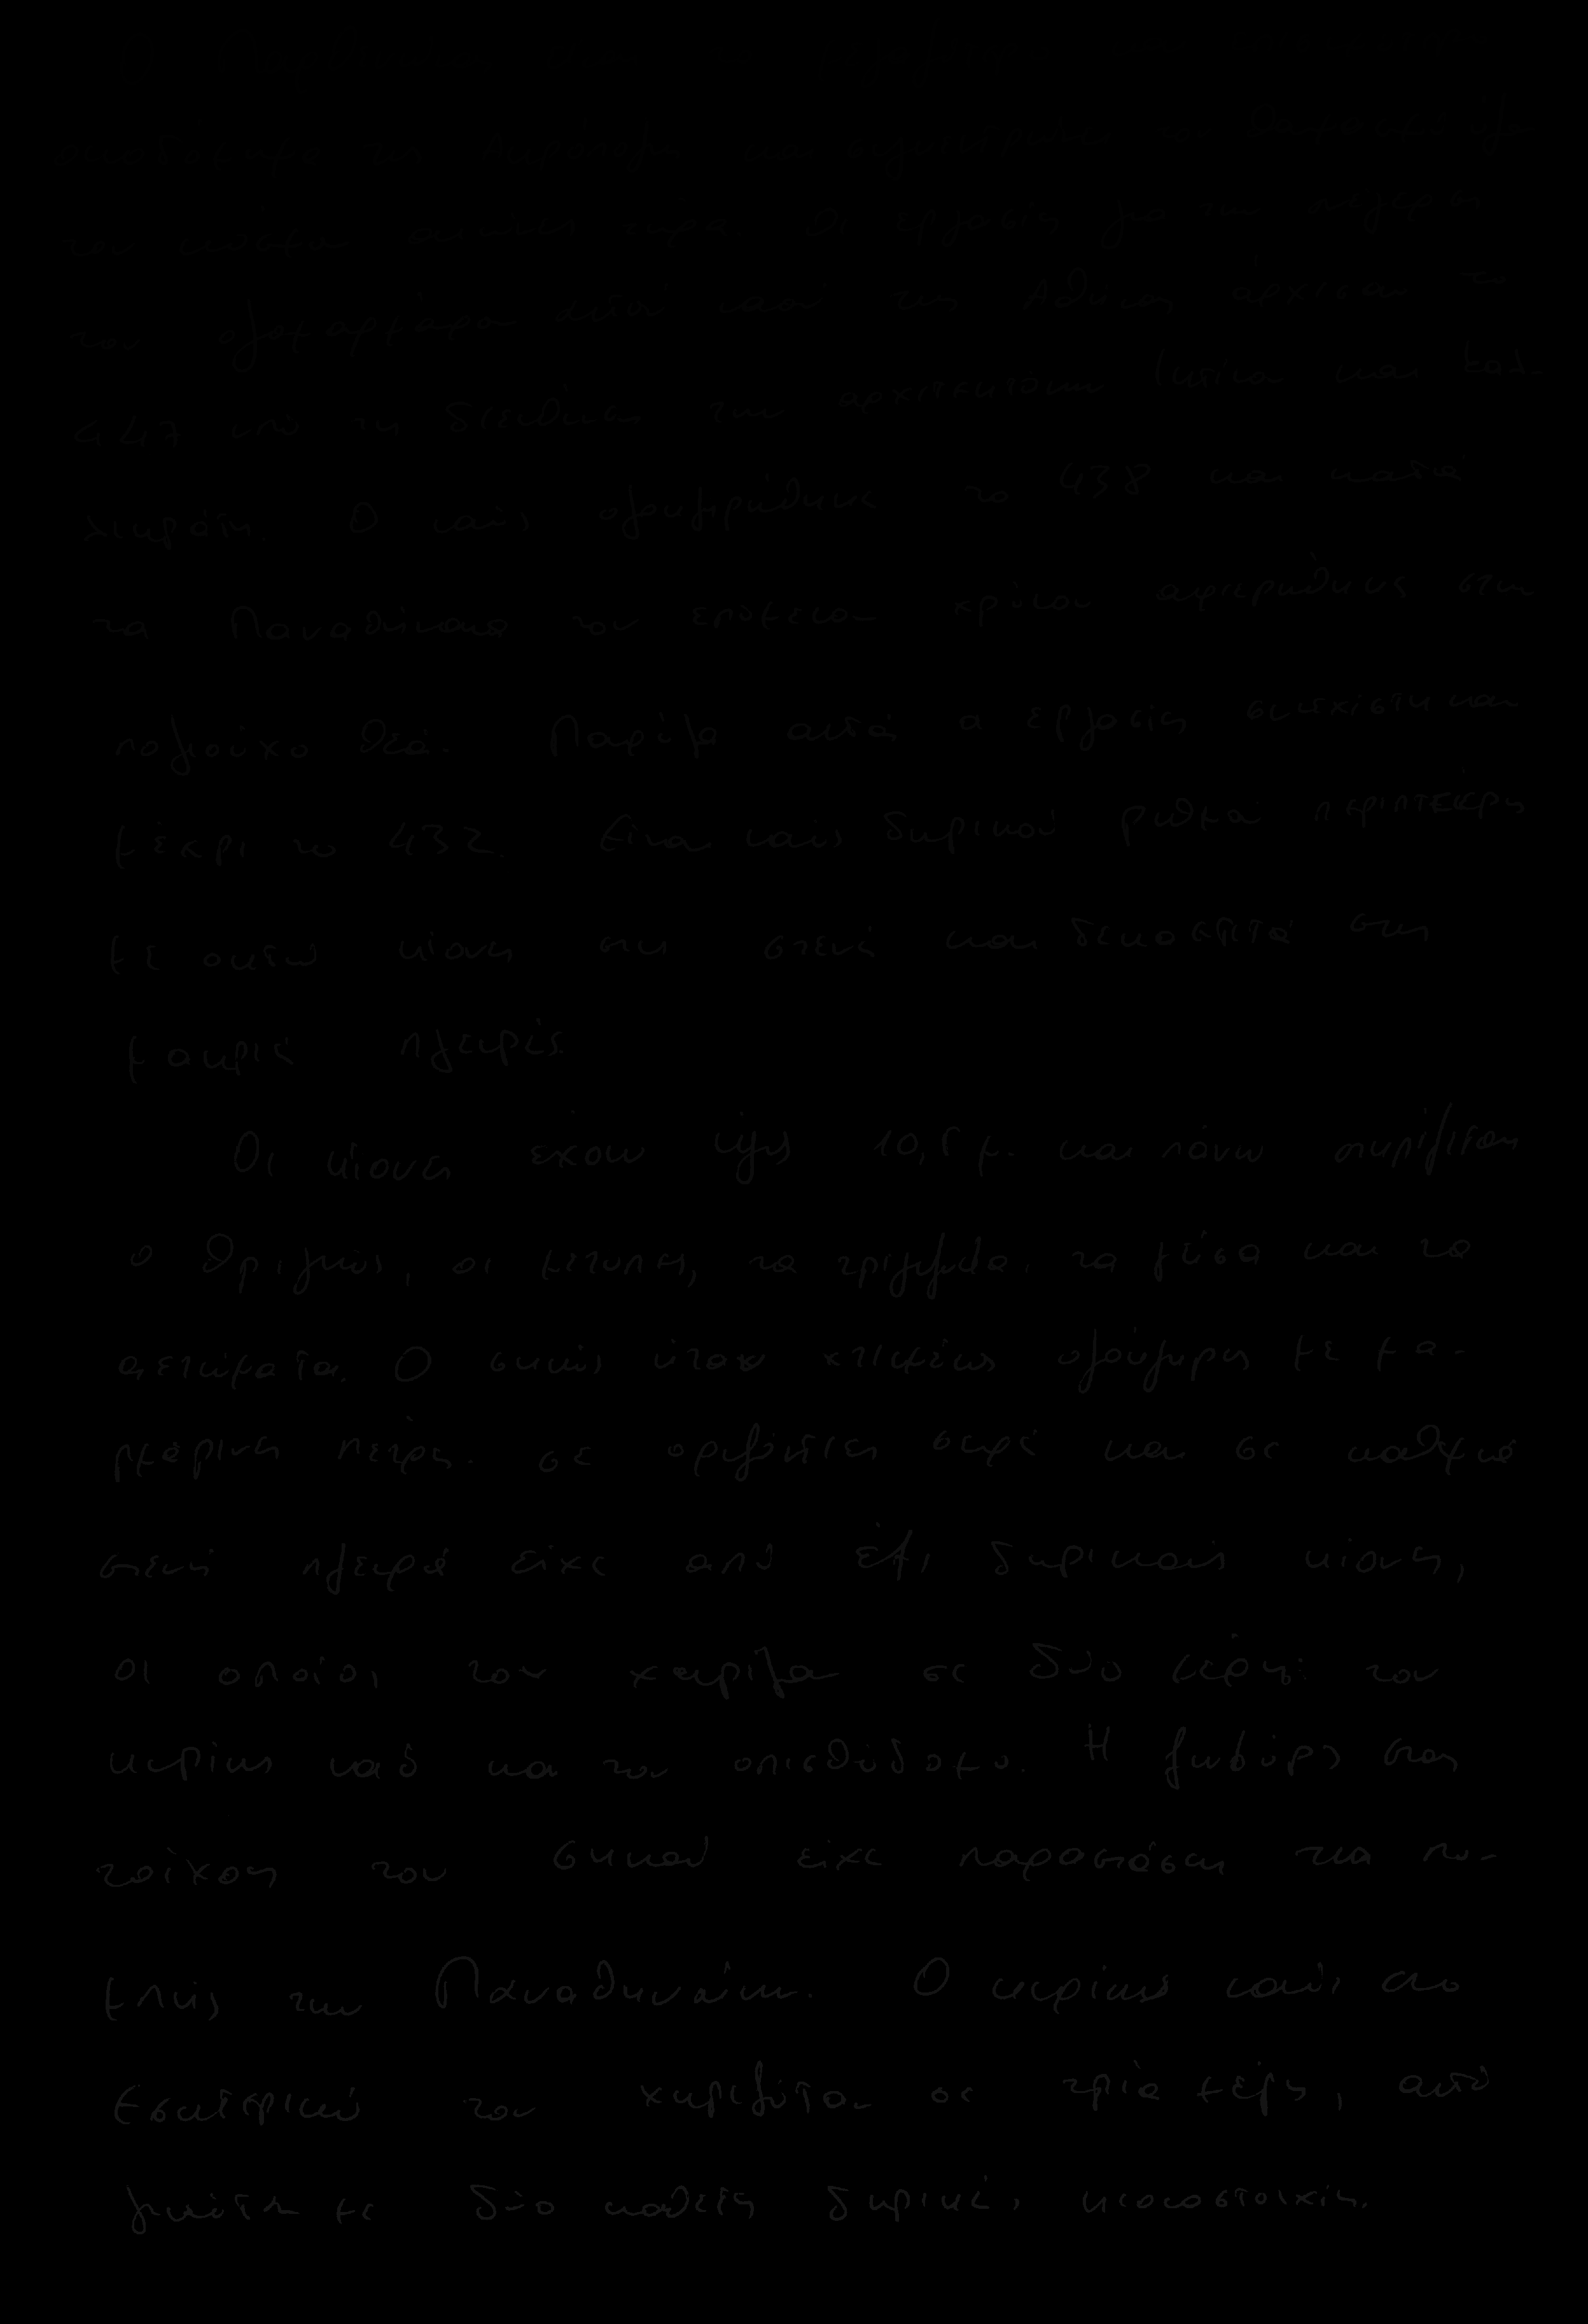 οικοδόμημα της Ακρόπολης και
του κόσμου αιώνες τώρα. Οι εργασίες για την ανέγερση
του ολομάρμαρου αυτού ναού της Αθηνάς άρχισαν το
447 υπό τη διεύθυνση των αρχιτεκτόνων Ικτίνου και Καλ-
λικράτη. Ο ναός ολοκληρώθηκε το 438 και κατά
τα Παναθήναια του επόμενου χρόνου αφιερώθηκε στην
πολιούχο θεά. Παρόλα αυτά οι εργασίες συνεχίστηκαν
μέχρι το 432. Είναι ναός δωρικού ρυθμού περίπτερος
με οκτώ κίονες στη στενή και δεκαεπτά στις
μακριές πλευρές.
Οι κίονες έχουν ύψος 10,5 μ. και πάνω στηρίζεται
ο θριγκός, οι μετόπες, τα τρίγλυφα, τα γείσα και τα
αετώματα. Ο σηκός ήταν κτισμένος ολόκληρος με μα-
ρμάρινες πέτρες σε οριζόντιες σειρές και σε καθεμιά
στενή πλευρά είχε από έξι δωρικούς κίονες,
οι οποίοι τον χώριζαν σε δύο μέρη: τον
κυρίως ναό και τον οπισθόδομο. Η ζωφόρος στους
τοίχους του σηκού είχε παραστάσεις από την πο-
μπής των Παναθηναίων. Ο κυρίως ναός στο
εσωτερικό του χωριζόταν σε τρία μέρη, αυτό
γινόταν με δύο καθέτες δωρικές κιονοστοιχίες.